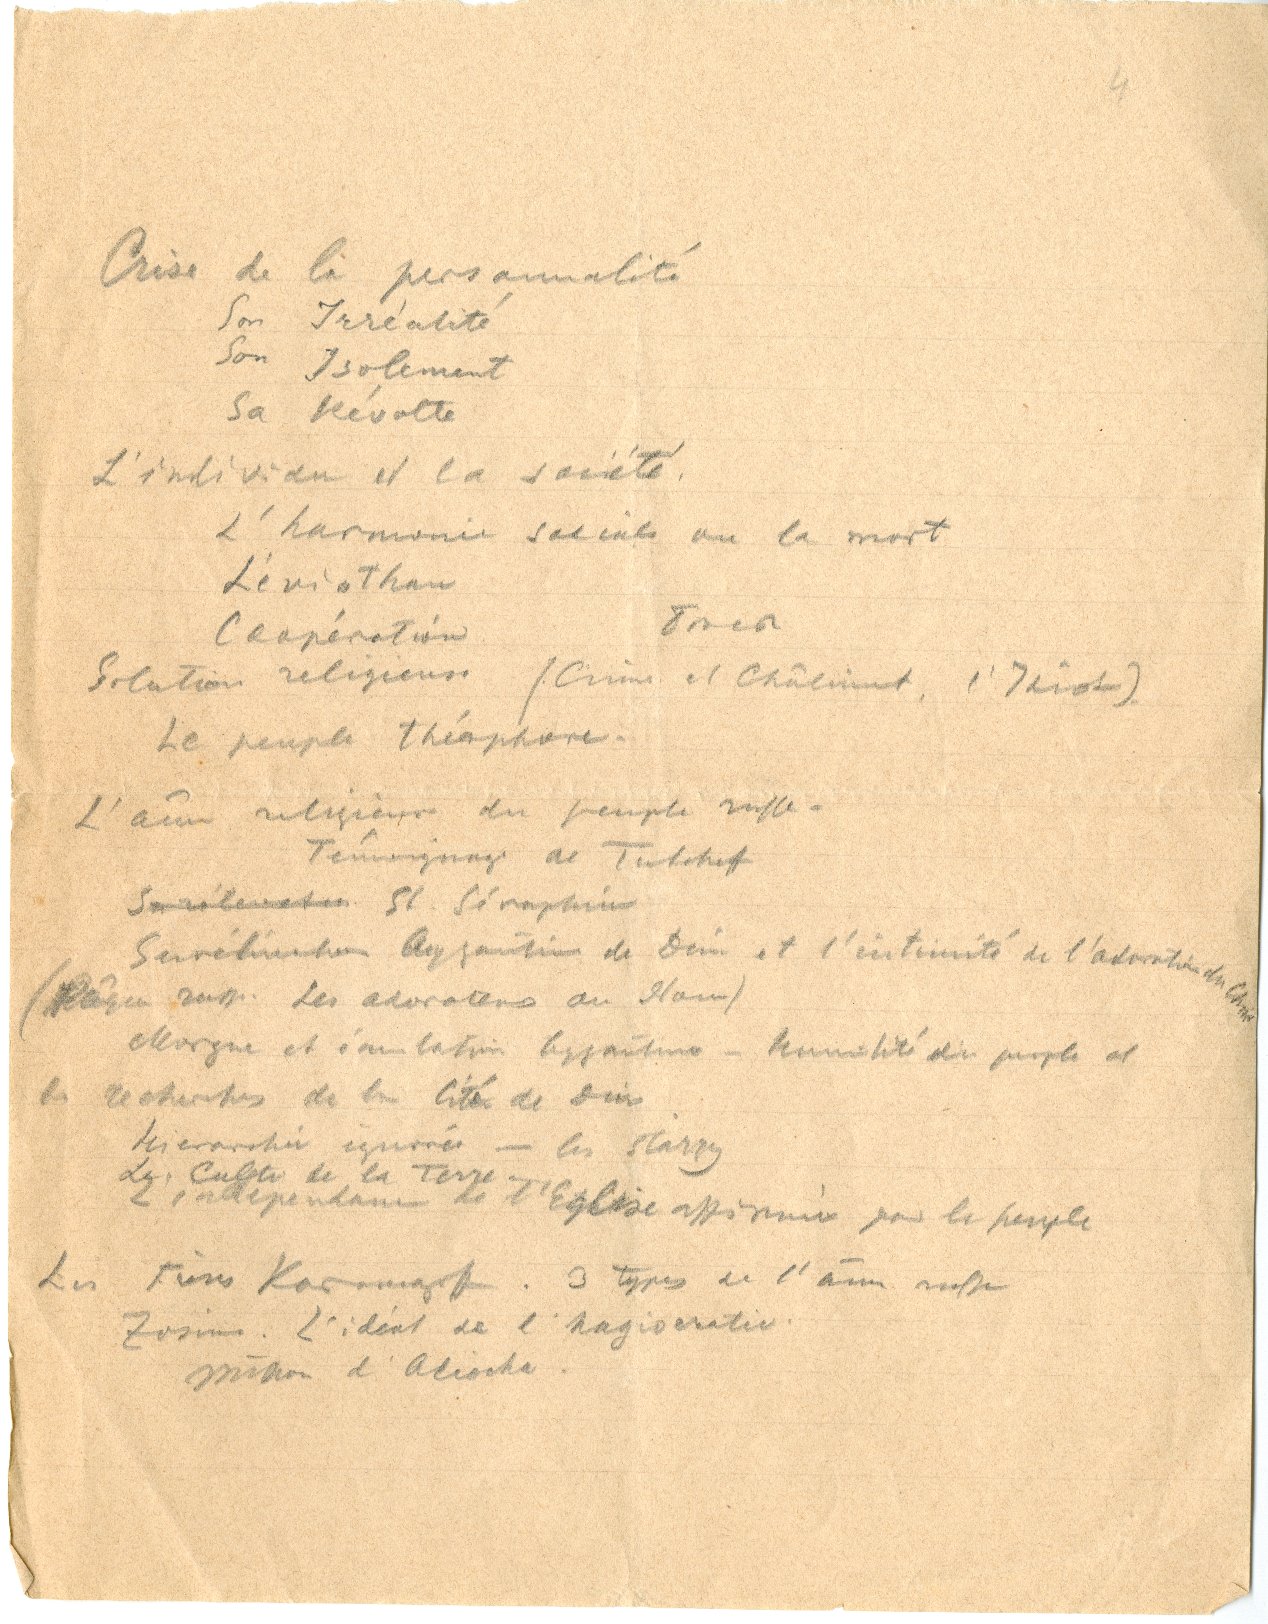 4
Crise de la personnalité
Son Irréalité
Son Isolement
Sa Révolte
L'individu et la société.
L'harmonie sociale ou la mort
Léviathan
Coopération
Solution religieuse (Crime et Châtiment, l'Idiot).
Le peuple théophore.
L'âme religieuse du peuple russe.
Témoignage de Tutchef
St. Séraphin
Byzantin de Dieu et l'intimité de l'adoration du Christ
russe. Les adorateurs du Nom)
Morgue et byzantine – Humilité du peuple et
les recherches de la Cité de Dieu
Hierarchie ignorée — les startzy
Le Culte de la Terre
L'indépendance de l'Eglise affirmée par le peuple
Les Frères Karamazof. 3 types de l'âme russe
Zosime. L'idéal de l'hagiocratie.
Mission d'Aliocha.